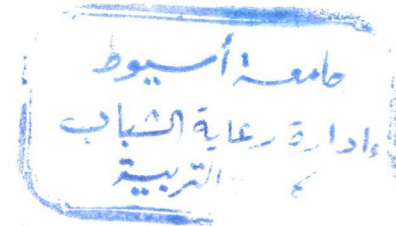 جامعة أسيوط
إدارة رعاية الشباب
التربية